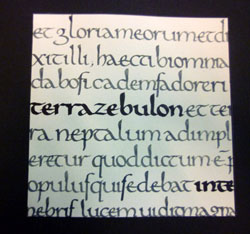 et gloriam eorum et di
xit illi, haec tibi omnia
dabo ſi cadenſ adoreri
terra zebulon et ter
ra neptalum adimpl
eretur quod dictum ē p
opuluſ qui ſedebat inte
nebriſ lucem uidit